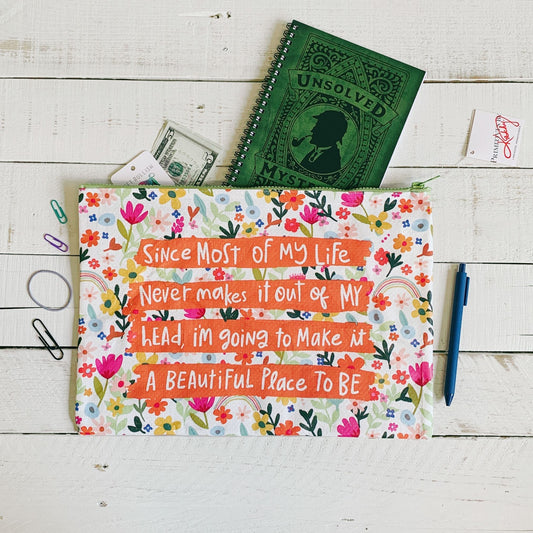 UNSOLVED
MYSTE
PRIMED
Kathy
Since Most of My Life
Never makes it out of MY
Head, i'm going to Make it
A BEAUtifUL Place To BE